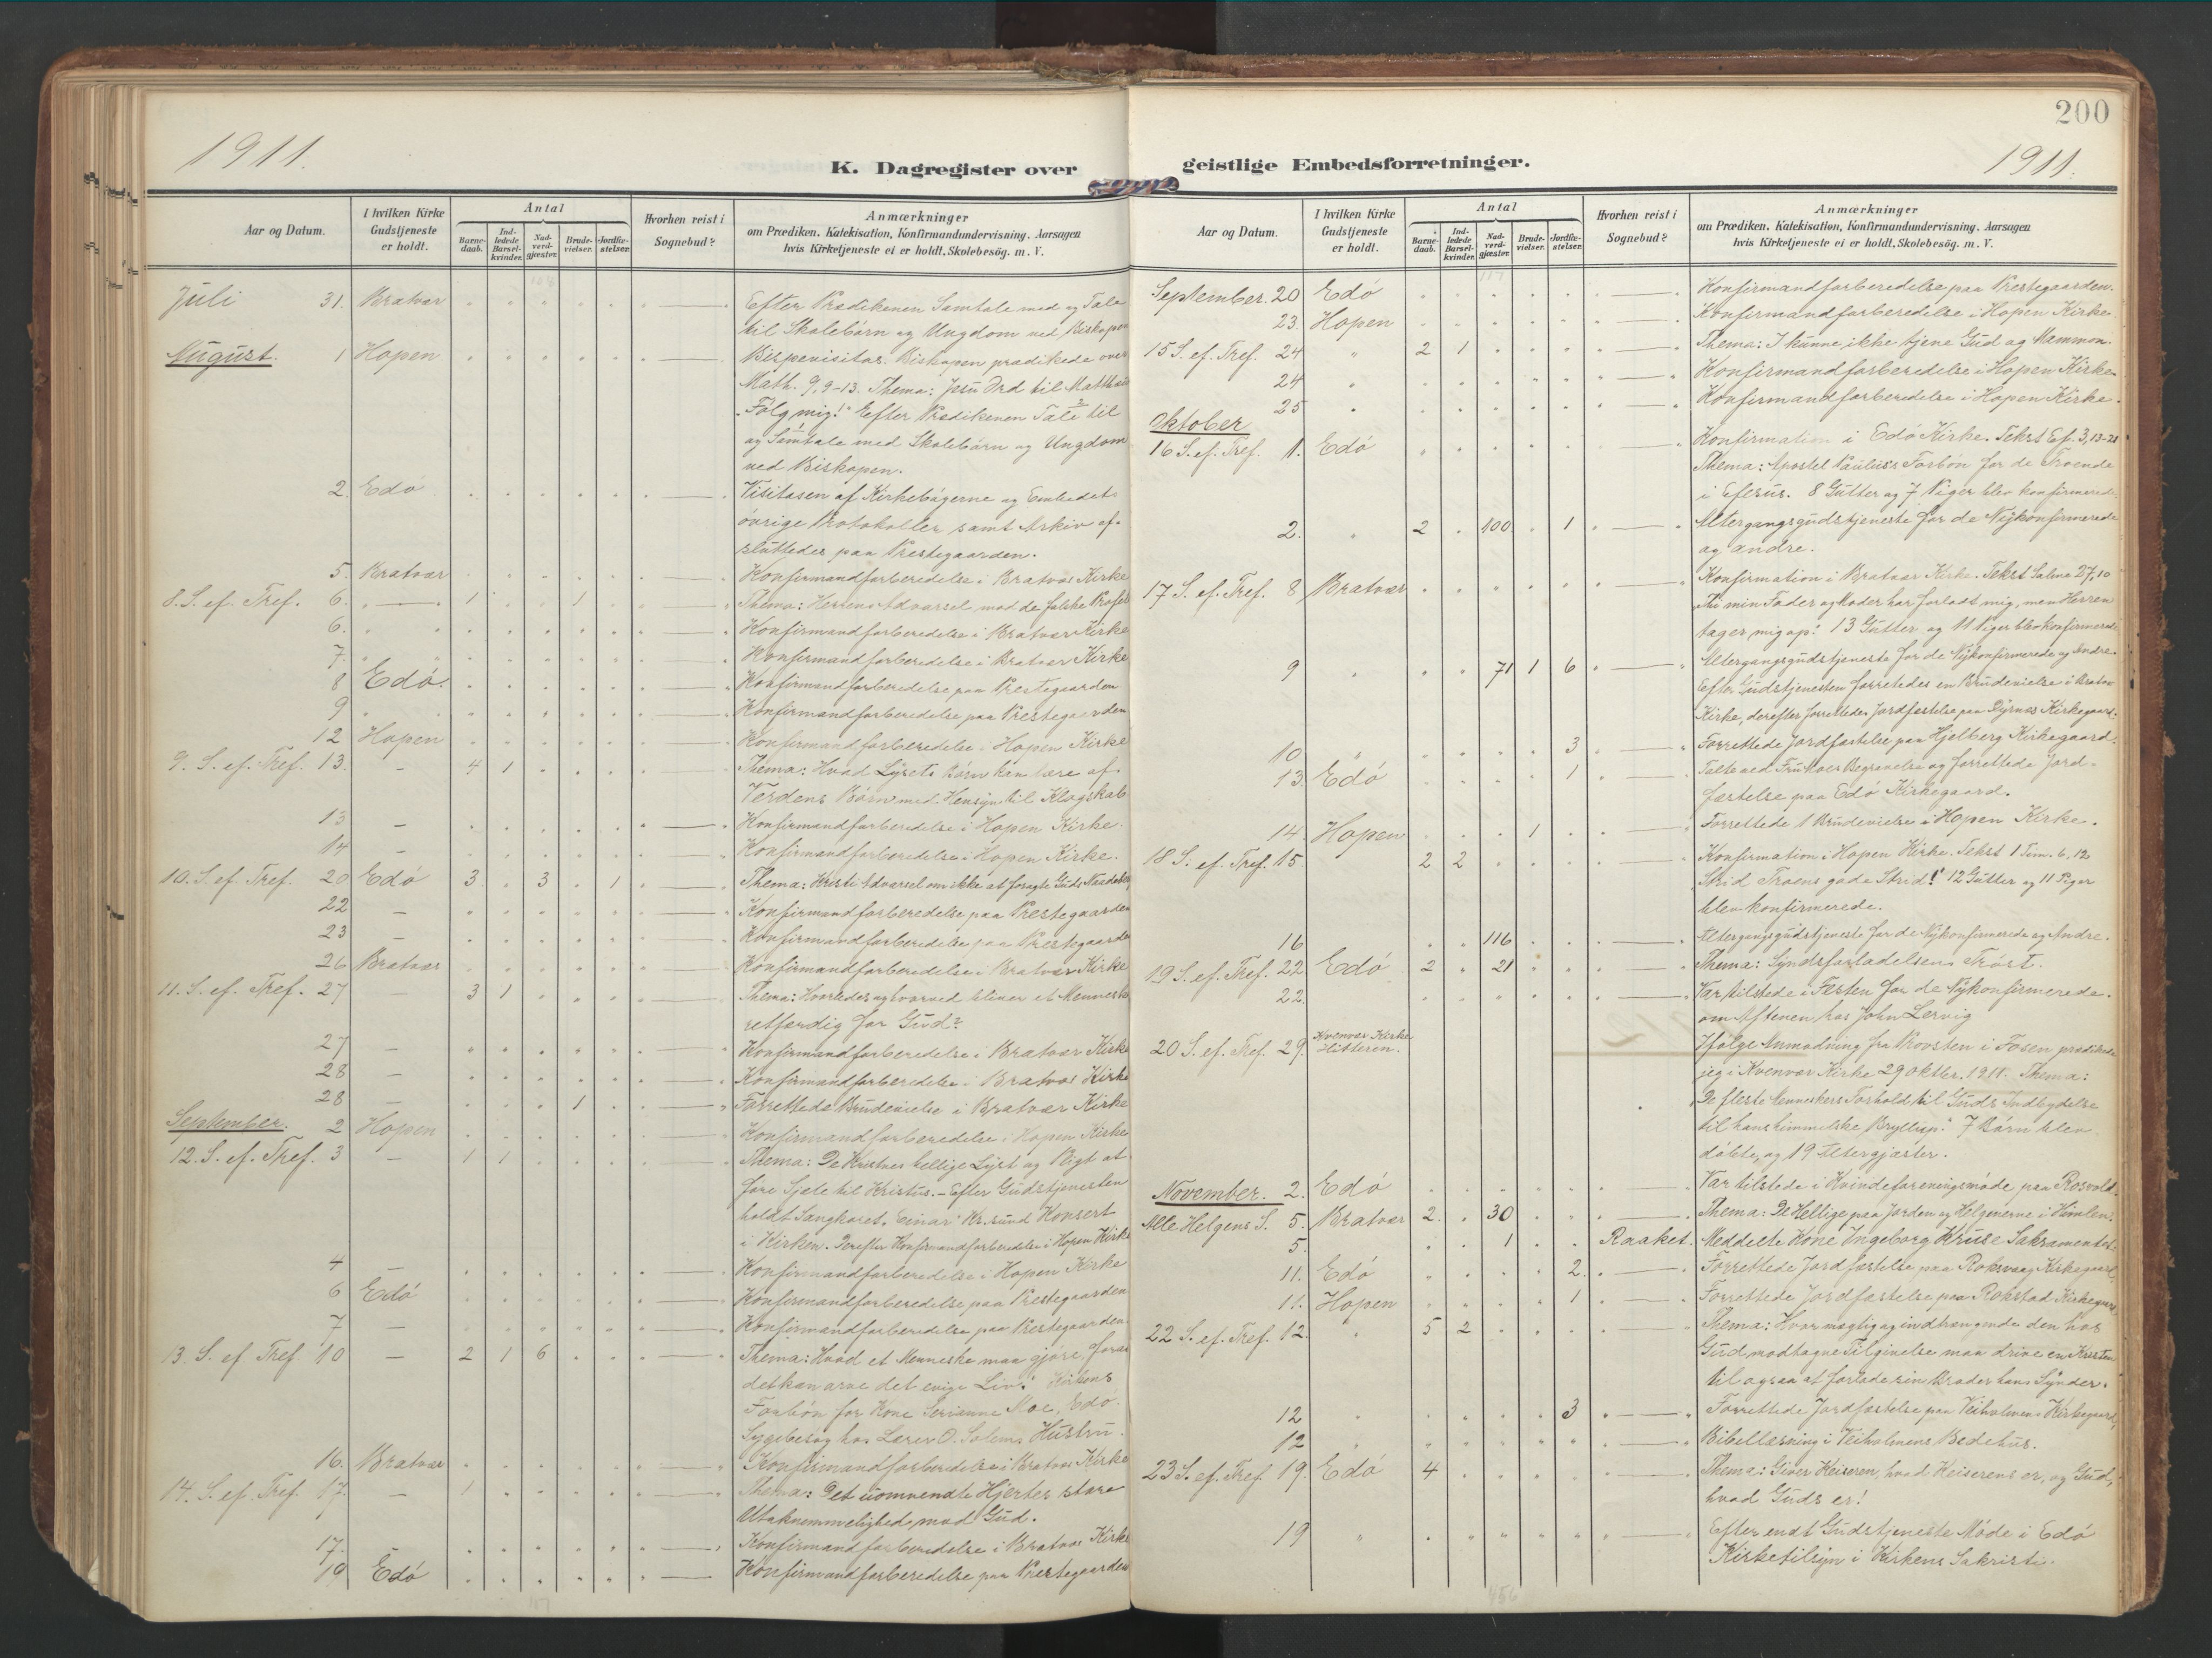 200
1911.
K. Dagregister over
Aar og Datum.
I hvilken Kirke Gudstjeneste er holdt.
Antal
Barne-daab.
Ind-ledede Barsel-kvinder.
Nad-verd-gjæster.
Brude-vielser.
Jordfæ-stelser.
Hvorhen reist i Sognebud?
Anmærkninger
om Prædiken, Katekisation, Konfirmandundervisning, Aarsagen
hvis Kirketjeneste ei er holdt, Skolebesøg. m. V.
Juli 31. Bratvær Efter Prædikenen Samtale med og Tale
til Skolebörn og Ungdom ved Biskopen
August. 1 Hopen Bispevisitas. Biskopen prædikede over
Math. 9, 9-13. Thema: Jesu Ord til Matthæus
"Fölg mig!" Efter Prædikenen Tale til
og Samtale med Skolebörn og Ungdom
ved Biskopen.
2. Edö Visitasen af Kirkebögerne og Embedets
övrige Protokoller samt Arkiv af-
sluttedes paa Prestegaarden.
5. Bratvær Konfirmandforberedelse i Bratvær Kirke
8. S. ef. Tref. 6. 1 1 Thema: Herrens Advarsel mod de falske Profet
6. Konfirmandforberedelse i Bratvær Kirke
7. Konfirmandforberedelse i Bratvær Kirke
8 Edö. Konfirmandforberedelse paa Prestegaarden
9 Konfirmandforberedelse paa Prestegaarden
12 Hopen Konfirmandforberedelse i Hopen Kirke
9. S. ef. Tref. 13. 4 1 Thema: Hvad Lysets Börn kan lære af
Verdens Börn med Hensyn til Klogskab
13 Konfirmandforberedelse i Hopen Kirke.
14 Konfirmandforberedelse i Hopen Kirke.
10. S. ef. Tref. 20 Edö 3 3 1 Thema: Kristi Advarsel om ikke at foragte Guds
22 Konfirmandforberedelse paa Prestegaarden
23 Konfirmandforberedelse paa Prestegaarde
26 Bratvær Konfirmandforberedelse i Bratvær Kirke
11. S. ef. Tref. 27 3 1 Thema: Hvorledes og hvorved bliver et Menneske
retfærdig for Gud?
27 Konfirmandforberedelse i Bratvær Kirke
28 Konfirmandforberedelse i Bratvær Kirke
28 1 Forrettede Brudevielse i Bratvær Kirke
September. 2 Hopen Konfirmandforberedelse i Hopen Kirke
12. S. ef. Tref. 3 1 1 Thema: De Kristnes hellige Lyst og Pligt at
före Sjæle til Kristus. – Efter Gudstjenesten
holdt Sangkoret "Einar" Kr.sund Konsert
i Kirken. Derefter Konfirmandforberedelse i Hopen Kirke
4 Konfirmandforberedelse i Hopen Kirke
6 Edö Konfirmandforberedelse paa Prestegaarden
7 Konfirmandforberedelse paa Prestegaarden.
13. S. ef Tref. 10 2 1 6 Thema: Hvad et Menneske maa gjöre for at
det kan arve det evige Liv! Kirkens
Forbön for Kone Serianne Moe, Edö.
Sygebesög hos Lærer O. Solems Hustru.
16. Bratvær Konfirmandforberedelse i Bratvær Kirke
14. S. ef. Tref. 17. 1 Thema: Det uomvendte Hjertes store
Utaknemmelighed mod Gud.
17. Konfirmandforberedelse i Bratvær Kirke
19 Edö Konfirmandforberedelse paa Prestegaarden
geistlige Embedsforretninger.
1911.
Aar og Datum.
I hvilken Kirke Gudstjeneste er holdt.
Antal
Barne-daab.
Ind-ledede Barsel-kvinder.
Nad-verd-gjæster.
Brude-vielser.
Jordfæ-stelser.
Hvorhen reist i Sognebud?
Anmærkninger
om Prædiken, Katekisation, Konfirmandundervisning, Aarsagen
hvis Kirketjeneste ei er holdt, Skolebesög. m. V.
September. 20 Edö Konfirmandforberedelse paa Prestegaarden.
23. Hopen Konfirmandforberedelse i Hopen Kirke
15 S. ef. Tref. 24 " 2 1 Thema: I kunne ikke tjene Gud og Mammon.
24 " Konfirmandforberedelse i Hopen Kirke
25 " Konfirmandforberedelse i Hopen Kirke.
Oktober
16 S. ef. Tref. 1. Edö Konfirmation i Edö Kirke. Tekst Ef. 3, 13-21
Thema: Apostel Paulus's Forbön for de Troende
i Efesus. 8 Gutter og 7 Piger blev konfirmerede.
2. " 2 100 1 Altergangsgudstjeneste for de Nykonfirmerede
og andre.
17 S. ef. Tref. 8 Bratvær Konfirmation i Bratvær Kirke. Tekst Salme 27, 10
"Thi min Fader og Moder har forladt mig, men Herren
tager mig op." 13 Gutter og 11 Piger blev konfirmerede
9 " 71 1 6 Altergangsgudstjeneste for de Nykonfirmerede og Andre.
Efter Gudstjenesten forrettedes en Brudevielse i Bratvær
Kirke, derefter forrettedes Jordfæstelse paa Dyrnæs Kirkegaard.
10 " 3 Forrettede Jordfæstelse paa Hjelberg Kirkegaard.
13. Edö 1 Talte ved Fru Begravelse og forrettede Jord-
fæstelse paa Edö Kirkegaard.
14. Hopen 1 Forrettede 1 Brudevielse i Hopen Kirke.
18 S. ef. Tref. 15 2 2 Konfirmation i Hopen Kirke. Tekst 1 Tim. 6, 12
"Strid Troens gode Strid!" 12 Gutter og 11 Piger
blev konfirmerede.
16 116 Altergangsgudstjeneste for de Nykonfirmerede og Andre.
19 S. ef. Tref. 22 Edö 2 " 21 Thema: Syndsforladelsens Tröst.
22. Var tilstede i Festen for de Nykonfirmerede
om Aftenen hos John Lervig
20 S. ef. Tref. 29. Kvenvær Kirke Hitteren. Ifölge Anmodning fra Provsten i Fosen prædikede
jeg i Kvenvær Kirke 29 oktbr. 1911. Thema:
De fleste Menneskers Forhold til Guds Indbydelse
til hans himmelske Bryllup." 7 Börn blev
döbte, og 19 Altergjæster.
November. 2. Edö Var tilstede i Kvindeforeningsmöde paa Rosvold.
Alle Helgens S. 5. Bratvær 2. 30 Thema: De Hellige paa Jorden og Helgenerne i Himlen.
5. 1 Raaket. Meddelte Kone Ingeborg Kruse Sakramentet.
11. Edö 2. Forrettede Jordfæstelse paa Roksvaag Kirkegaard.
11. Hopen 1 Forrettede Jordfæstelse paa Rokstad Kirkegaard
22 S. ef. Tref. 12. " 5 2 Thema: Hvor mægtig og indtrængende den hos
Gud modtagne Tilgivelse maa drive en Kristen
til ogsaa at forlade sin Broder hans Synder.
12 " 3 Forrettede Jordfæstelse paa Veiholmens Kirkegaard,
12 Bibellæsning i Veiholmens Bedehus.
23 S. ef. Tref. 19. Edö 4 Thema: Giver Keiseren, hvad Keiserens er, og Gud,
hvad Guds er!
19 " Efter endt Gudstjeneste Möde i Edö
Kirketilsyn i Kirkens Sakristi.